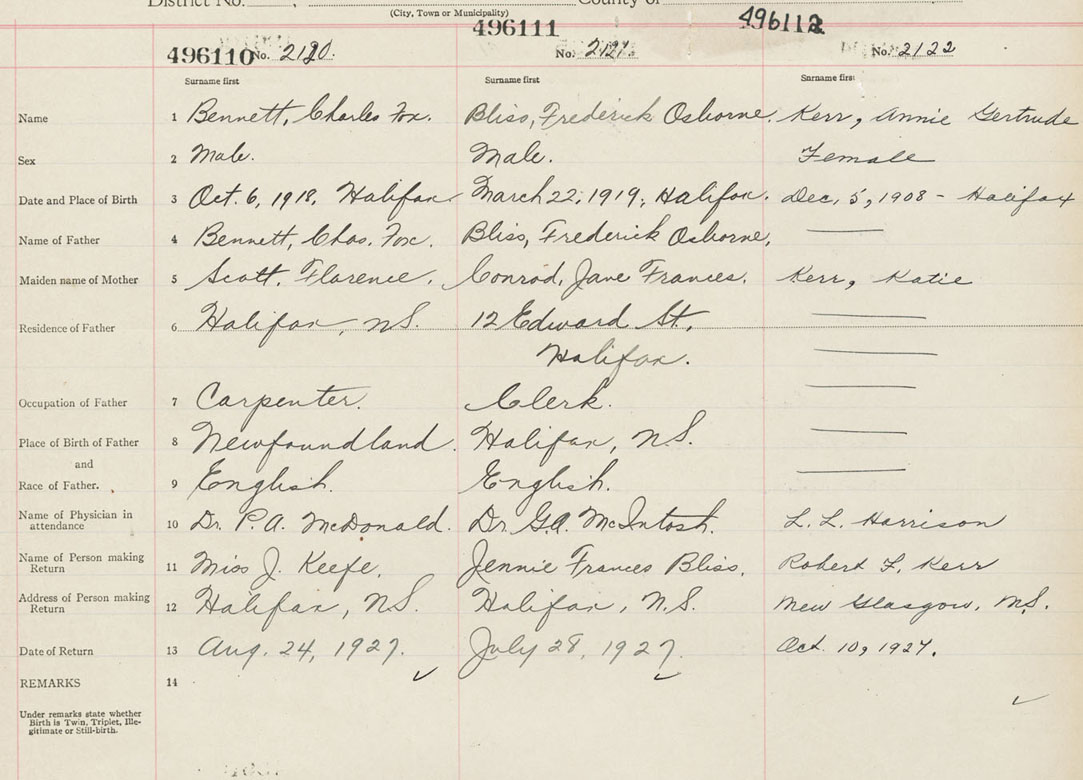 District No. County of
(City, Town or Municipality)
496110 No. 2120. 496111 No. 2121. 496112 No. 2122
Surname first Surname first Surname first
Name 1 Bennett, Charles Fox. Bliss, Frederick Osborne. Kerr, Annie Gertrude
Sex 2 Male. Male. Female
Date and Place of Birth 3 Oct. 6, 1918, Halifax. March 22, 1919, Halifax. Dec. 5, 1908 - Halifax
Name of Father 4 Bennett, Chas. Fox. Bliss, Frederick Osborne,
Maiden name of Mother 5 Scott, Florence. Conrod, Jane Frances. Kerr, Katie
Residence of Father 6 Halifax, N.S. 12 Edward St.
Halifax.
Occupation of Father 7 Carpenter. Clerk.
Place of Birth of Father 8 Newfoundland. Halifax, N.S.
and
Race of Father. 9 English. English.
Name of Physician in
attendance 10 Dr. P.A. McDonald. Dr. G.A. McIntosh. L. L. Harrison
Name of Person making
Return 11 Miss J. Keefe. Jennie Frances Bliss. Robert F. Kerr
Address of Person making
Return 12 Halifax, N.S. Halifax, N.S. New Glasgow, N.S.
Date of Return 13 Aug. 24, 1927. July 28, 1927. Oct. 10, 1927.
REMARKS 14
Under remarks state whether
Birth is Twin, Triplet, Ille-
gitimate or Still-birth.